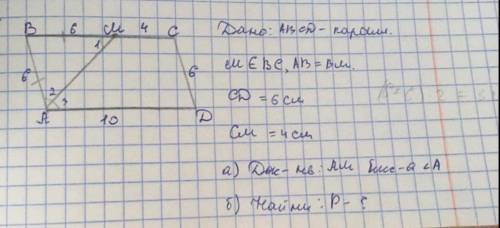 B 6 M 4 C
1
6 2 3 6
A 10 D
Дано: ABCD - паралл.
M ∈ BC, AB = BM.
CD = 6 см
CM = 4 см
а) Док-ть: AM бисс-а ∠A
б) Найти: P - ?